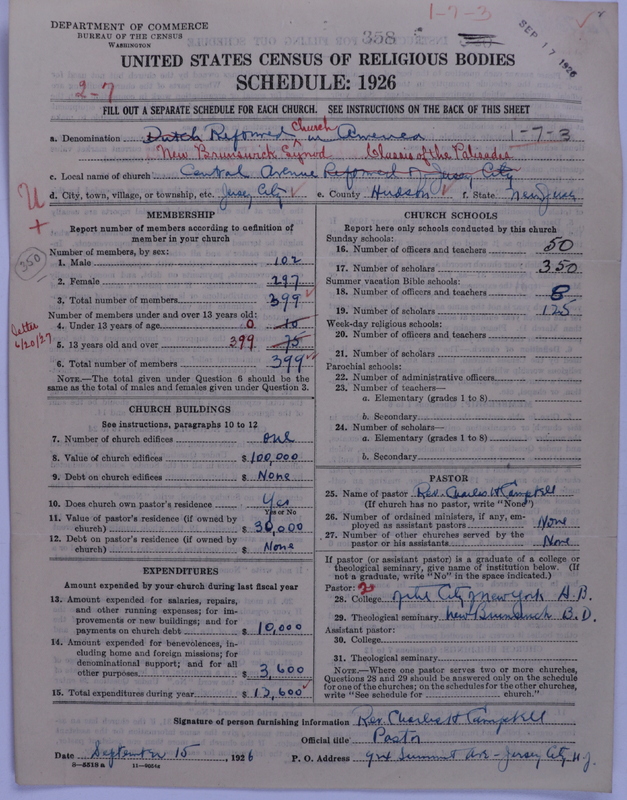 1-7-3
DEPARTMENT OF COMMERCE
BUREAU OF THE CENSUS
WASHINGTON
358
SEP 17 1926
UNITED STATES CENSUS OF RELIGIOUS BODIES
SCHEDULE: 1926
2-7
FILL OUT A SEPARATE SCHEDULE FOR EACH CHURCH. SEE INSTRUCTIONS ON THE BACK OF THIS SHEET
a. Denomination Dutch Reformed Church in America 1-7-3
New Brunswick Synod Classis of the Palisades
c. Local name of church Central Avenue Reformed of Jersey City
d. City, town, village, or township, etc. Jersey City e. County Hudson f. State New Jersey
MEMBERSHIP
Report number of members according to definition of
member in your church
Number of members, by sex:
1. Male 102
2. Female 297
3. Total number of members 399
Number of members under and over 13 years old:
4. Under 13 years of age 0 10
5. 13 years old and over 399 75
6. Total number of members 399
350
letter
6/20/27
NOTE.—The total given under Question 6 should be the
same as the total of males and females given under Question 3.
CHURCH BUILDINGS
See instructions, paragraphs 10 to 12
7. Number of church edifices one
8. Value of church edifices $100,000
9. Debt on church edifices $ None
10. Does church own pastor's residence Yes
Yes or No
11. Value of pastor's residence (if owned by
church) $ 30,000
12. Debt on pastor's residence (if owned by
church) $ None
EXPENDITURES
Amount expended by your church during last fiscal year
13. Amount expended for salaries, repairs,
and other running expenses; for im-
provements or new buildings; and for
payments on church debt $ 10,000
14. Amount expended for benevolences, in-
cluding home and foreign missions; for
denominational support; and for all
other purposes $ 3,600
15. Total expenditures during year $ 13,600
CHURCH SCHOOLS
Report here only schools conducted by this church
Sunday schools:
16. Number of officers and teachers 50
17. Number of scholars 350
Summer vacation Bible schools:
18. Number of officers and teachers 8
19. Number of scholars 125
Week-day religious schools:
20. Number of officers and teachers
21. Number of scholars
Parochial schools:
22. Number of administrative officers
23. Number of teachers—
a. Elementary (grades 1 to 8)
b. Secondary
24. Number of scholars—
a. Elementary (grades 1 to 8)
b. Secondary
PASTOR
25. Name of pastor Rev. Charles H Campbell
(If church has no pastor, write "None")
26. Number of ordained ministers, if any, em-
ployed as assistant pastors None
27. Number of other churches served by the
pastor or his assistants None
If pastor (or assistant pastor) is a graduate of a college or
theological seminary, give name of institution below. (If
not a graduate, write "No" in the space indicated.)
Pastor: 2
28. College City of New York A.B.
29. Theological seminary New Brunswick B.D.
Assistant pastor:
30. College
31. Theological seminary
NOTE.—Where one pastor serves two or more churches,
Questions 28 and 29 should be answered only on the schedule
for one of the churches; on the schedules for the other churches,
write "See schedule for church."
Signature of person furnishing information Rev. Charles H Campbell
Official title Pastor
Date September 15, 1926 P. O. Address Summit Ave - Jersey City N.J.
8—5518 a 11—9054a